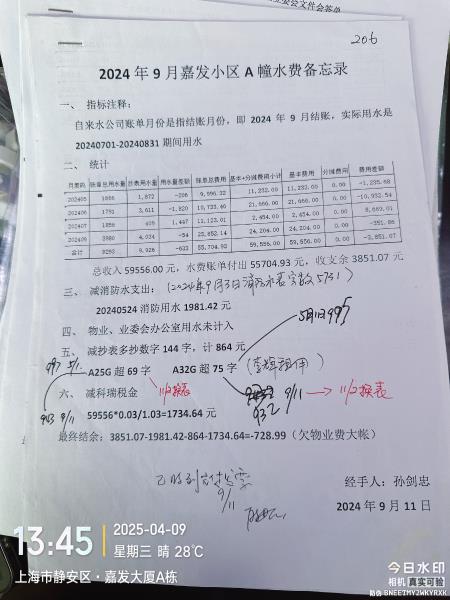 业委会文件会签单
206
2024年9月嘉发小区A幢水费备忘录
一、 指标注释：
自来水公司账单月份是指结账月份，即 2024 年 9 月结账，实际用水是
20240701-20240831 期间用水
二、 统计
月度码 账单总用水量 抄表用水量 用水量差额 账单总费用 基本+分摊费用小计 基本费用 分摊费用 费用差额
202405 1666 1,872 -206 9,996.32 11,232.00 11,232.00 0.00 -1,235.68
202406 1791 3,611 -1,820 10,733.46 21,666.00 21,666.00 0.00 -10,932.54
202407 1856 409 1,447 11,123.01 2,454.00 2,454.00 0.00 8,669.01
202409 3980 4,034 -54 23,852.14 24,204.00 24,204.00 0.00 -351.86
合计 9293 9,926 -633 55,704.93 59,556.00 59,556.00 0.00 -3,851.07
总收入 59556.00 元，水费账单付出 55704.93 元，收支余 3851.07 元
三、 减消防水支出：（2024年9月3日消防水表字数5731）
20240524 消防用水 1981.42 元
四、 物业、业委会办公室用水未计入
5月1日995
五、 减抄表多抄数字 144 字，计 864 元
997 5/1
A25G 超 69 字 A32G 超 75 字
11/2换表
9/11 → 11/2换表
932
六、 减科瑞税金
943 9/11
59556*0.03/1.03=1734.64 元
最终结余：3851.07-1981.42-864-1734.64=-728.99（欠物业费大帐）
9/11
经手人：孙剑忠
2024 年 9 月 11 日
13:45
2025-04-09
星期三 晴 28℃
上海市静安区·嘉发大厦A栋
今日水印
相机 真实可验
防伪 BNEETMY2WKYRXK